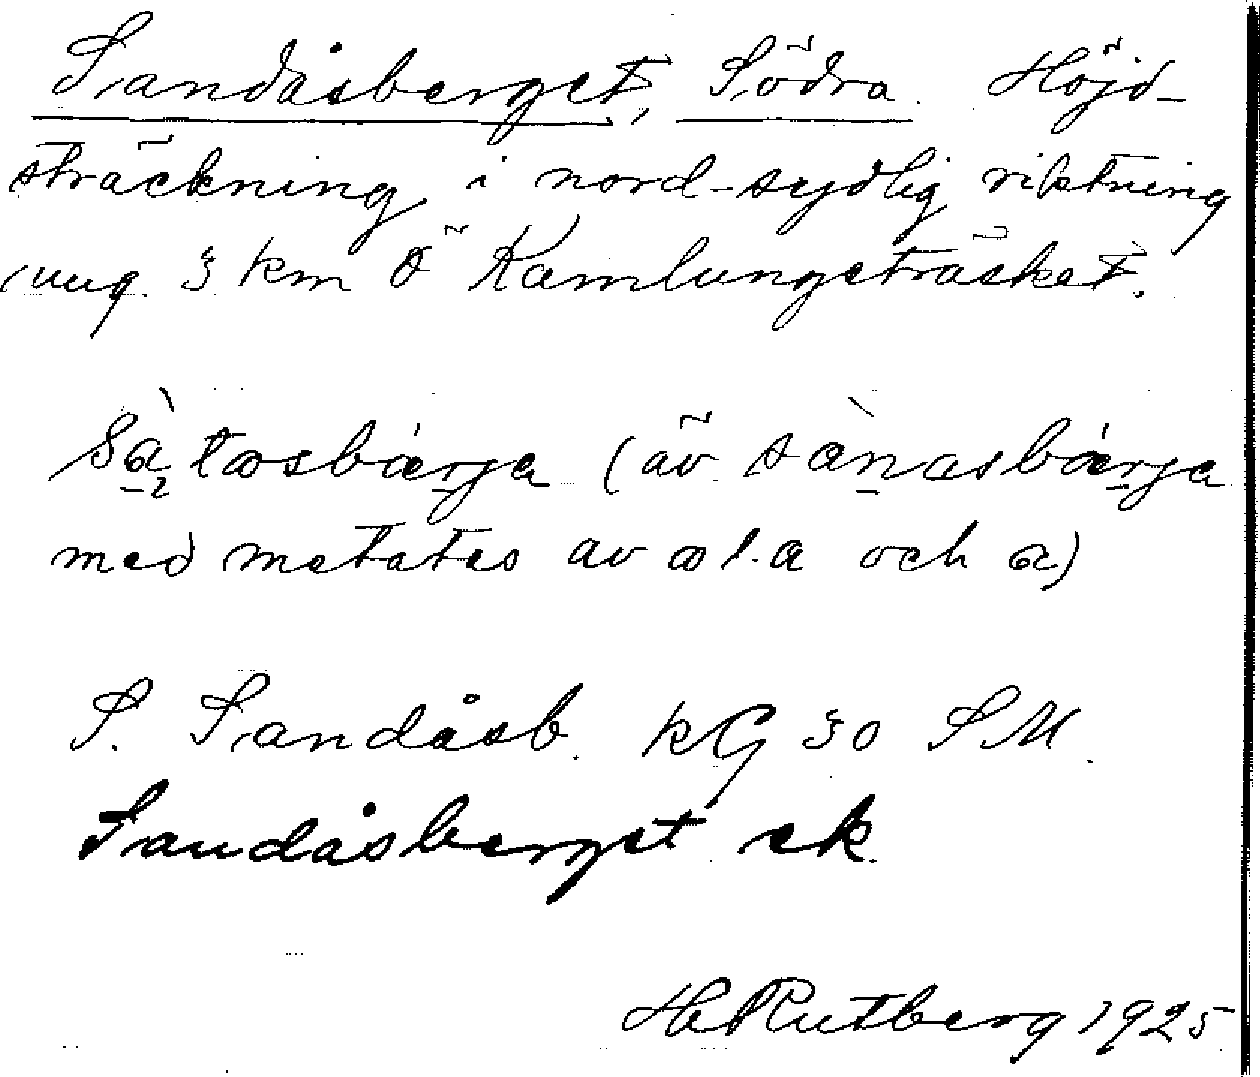 Sandåsberget, Södra. Höjd-
sträckning i nord-sydlig riktning
ung. 3 km Ö Kamlungeträsket.
(av
med metates av och
S. Sandåsb. kG 30 SM.
Sandåsberget ek.
H. Rutberg 1925